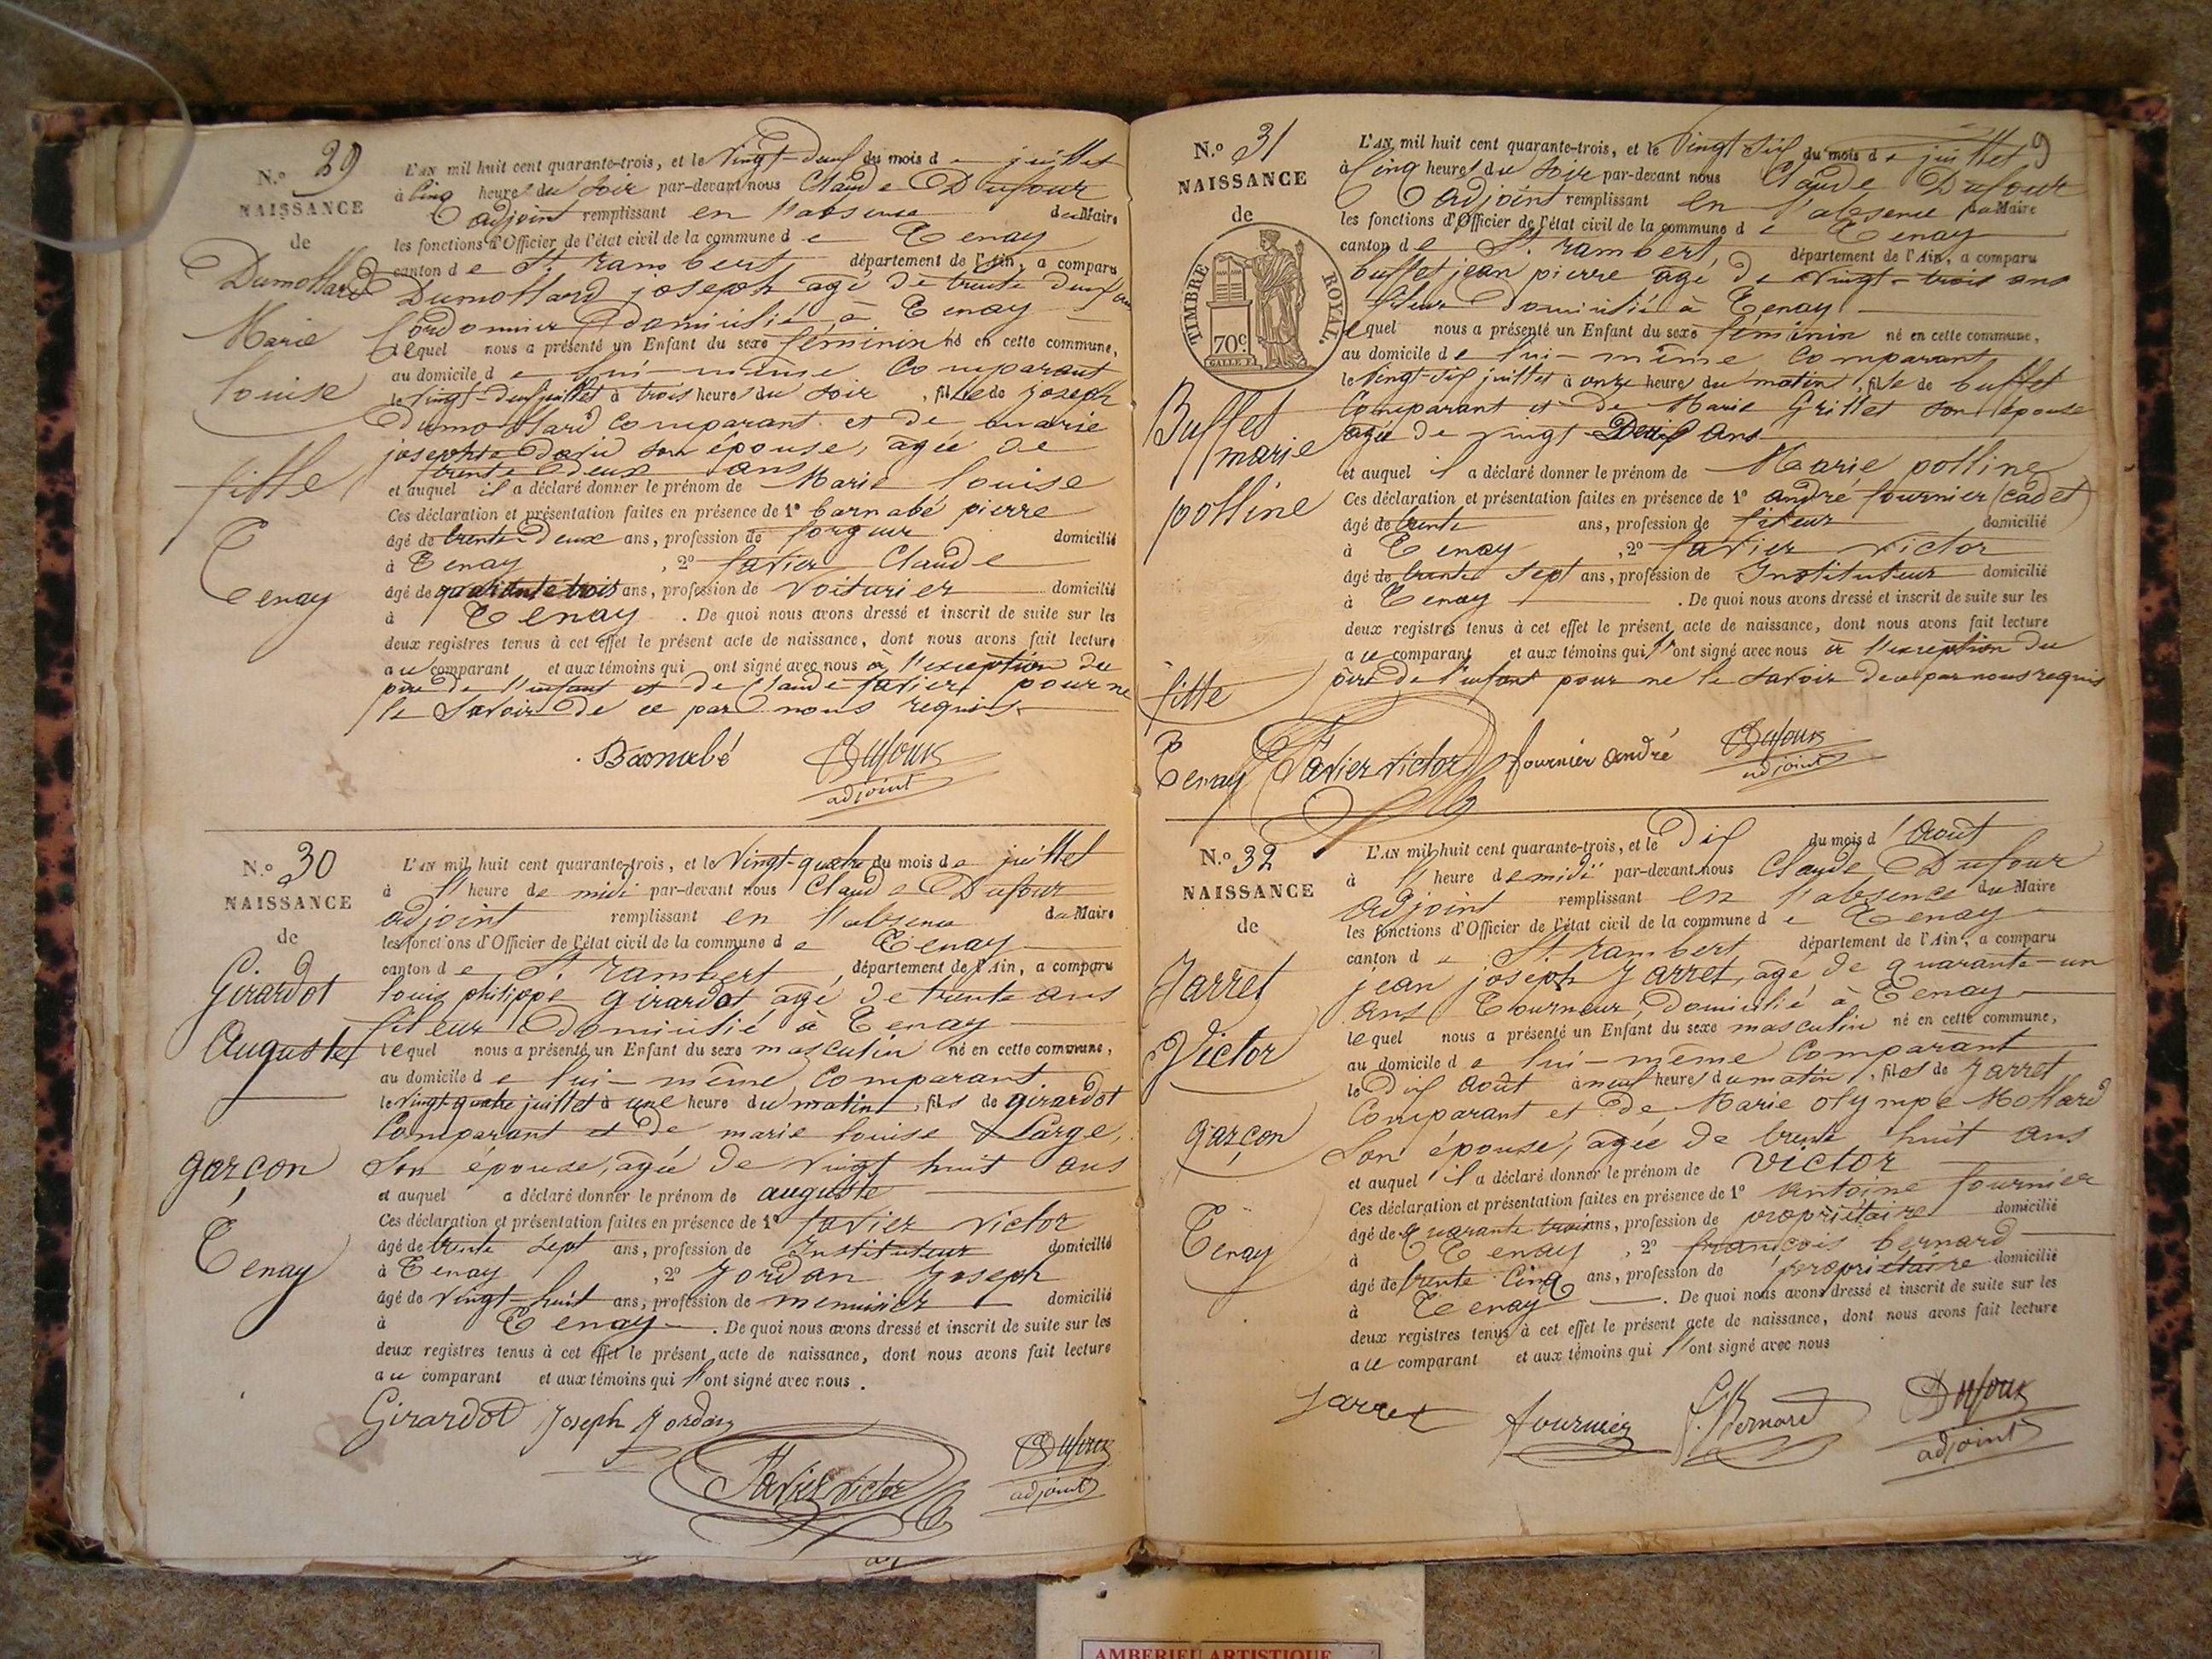 N.o 29
NAISSANCE
de
Dumollard
Marie
louise
fille
Tenay
L'AN mil huit cent quarante-trois, et le Vingt-deux du mois de juillet
à cinq heures du soir par-devant nous Claude Dufour
adjoint remplissant en l'absence du Maire
les fonctions d'Officier de l'état civil de la commune de Tenay
canton de St. rambert département de l'Ain, a comparu
Dumollard joseph agé de trente deux ans
Cordonnier domicilié à Tenay
lequel nous a présenté un Enfant du sexe féminin né en cette commune,
au domicile de lui-même Comparant
le vingt-deux juillet à trois heures du soir, fille de joseph
dumollard comparant et de marie
josephte son épouse, agée de
trente deux ans
et auquel il a déclaré donner le prénom de Marie louise
Ces déclaration et présentation faites en présence de 1º barnabé pierre
âgé de trente-deux ans, profession de forgeur domicilié
à Tenay, 2º favier Claude
âgé de quarante trois ans, profession de voiturier domicilié
à Tenay. De quoi nous avons dressé et inscrit de suite sur les
deux registres tenus à cet effet le présent acte de naissance, dont nous avons fait lecture
au comparant et aux témoins qui ont signé avec nous à l'exception du
père de l'enfant et de Claude favier pour ne
le savoir de ce par nous requis
Barnabé Dufour
adjoint
N.o 30
NAISSANCE
de
Girardot
Auguste
garçon
Tenay
L'AN mil huit cent quarante-trois, et le Vingt-quatre du mois de juillet
à l'heure de midi par-devant nous Claude Dufour
adjoint remplissant en l'absence du Maire
les fonctions d'Officier de l'état civil de la commune de Tenay
canton de St. rambert, département de l'Ain, a comparu
louis philippe girardot, agé de trente ans
fileur domicilié à Tenay
lequel nous a présenté un Enfant du sexe masculin né en cette commune,
au domicile de lui-même Comparant
le vingt-quatre juillet à une heure du matin, fils de girardot
Comparant et de marie louise Large,
son épouse, agée de vingt huit ans
et auquel a déclaré donner le prénom de auguste
Ces déclaration et présentation faites en présence de 1º favier victor
âgé de trente sept ans, profession de Instituteur domicilié
à Tenay, 2º Jordan Joseph
âgé de vingt-huit ans, profession de menuisier domicilié
à Tenay. De quoi nous avons dressé et inscrit de suite sur les
deux registres tenus à cet effet le présent acte de naissance, dont nous avons fait lecture
au comparant et aux témoins qui l'ont signé avec nous.
Girardot Joseph Jordan
Favier victor Dufour
adjoint
9
N.o 31
NAISSANCE
de
TIMBRE ROYAL.
70c
Buffet
marie
polline
fille
Tenay
L'AN mil huit cent quarante-trois, et le Vingt six du mois de juillet
à cinq heures du soir par-devant nous Claude Dufour
adjoint remplissant en l'absence du Maire
les fonctions d'Officier de l'état civil de la commune de Tenay
canton de St. rambert, département de l'Ain, a comparu
buffet jean pierre agé de vingt-trois ans
fileur domicilié à Tenay
lequel nous a présenté un Enfant du sexe féminin né en cette commune,
au domicile de lui-même Comparant
le vingt-six juillet à onze heures du matin, fille de buffet
Comparant et de Marie Grillet son épouse
agée de vingt ans
et auquel il a déclaré donner le prénom de Marie polline
Ces déclaration et présentation faites en présence de 1º andré fournier (cadet)
âgé de trente ans, profession de fileur domicilié
à Tenay, 2º favier victor
âgé de trente sept ans, profession de Instituteur domicilié
à Tenay. De quoi nous avons dressé et inscrit de suite sur les
deux registres tenus à cet effet le présent acte de naissance, dont nous avons fait lecture
au comparant et aux témoins qui l'ont signé avec nous à l'exception du
père de l'enfant pour ne le savoir de ce par nous requis
Favier victor fournier andré Dufour
adjoint
N.o 32
NAISSANCE
de
Jarret
Victor
garçon
Tenay
L'AN mil huit cent quarante-trois, et le Dix du mois d'Aout
à l'heure de midi par-devant nous Claude Dufour
adjoint remplissant en l'absence du Maire
les fonctions d'Officier de l'état civil de la commune de Tenay
canton de St. rambert département de l'Ain, a comparu
jean joseph Jarret, agé de quarante-un
ans Tourneur, domicilié à Tenay
lequel nous a présenté un Enfant du sexe masculin né en cette commune,
au domicile de lui-même Comparant
le Dix Août à neuf heures du matin, fils de Jarret
Comparant et de Marie olympe Mollard
son épouse, agée de trente huit ans
et auquel il a déclaré donner le prénom de Victor
Ces déclaration et présentation faites en présence de 1º Antoine fournier
âgé de quarante trois ans, profession de propriétaire domicilié
à Tenay, 2º françois bernard
âgé de trente cinq ans, profession de propriétaire domicilié
à Tenay. De quoi nous avons dressé et inscrit de suite sur les
deux registres tenus à cet effet le présent acte de naissance, dont nous avons fait lecture
au comparant et aux témoins qui l'ont signé avec nous
Jarret fournier f. Bernard Dufour
adjoint
AMBERIEU ARTISTIQUE